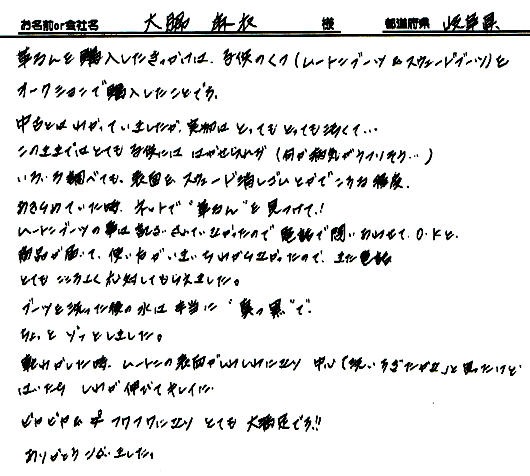 お名前or会社名 大勝 麻衣 様 都道府県 岐阜県
革おんを購入したきっかけは、子供のくつ(ムートンブーツとスウェードブーツ)を
オークションで購入したことです。
中古とはわかっていましたが、実物はとってもとっても汚くて…
このままではとても子供にははかせられれず(何か病気がうつりそう…)
いろいろ調べても、表面をスウェード消しゴムとかでこする程度。
あきらめていた時、ネットで"革おん"を見つけて!
ムートンブーツの事は記されていなかったので電話で問い合わせて、O・Kと。
商品が届いて、使い方がいまいちわからなかったので、また電話
とてもこころよく応対してもらえました。
ブーツを洗った後の水は本当に"真っ黒"で、
ちょっとゾッとしました。
乾かした時、ムートンの表面がしわしわになり 中「洗いすぎたかな」と思ったけど
はいたら しわが伸びてキレイに
ピカピカ フワフワになり とても大満足です!!
ありがとうございました。